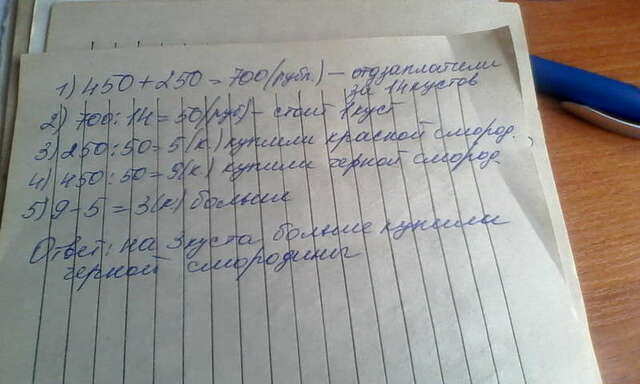 1) 450 + 250 = 700 (рубл.) - отдзаплатили
за 14 кустов
2) 700 : 14 = 50 (руб) - стоит 1 куст
3) 250 : 50 = 5 (к) купили красной смород.
4) 450 : 50 = 9 (к) купили черной смород.
5) 9 - 5 = 3 (к) больше
Ответ: на 3 куста больше купили
черной смородины